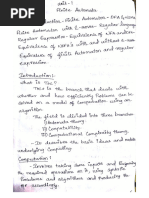 Unit-1
Finite Automata
Introduction - Finite Automata - DFA & NDFA
Finite Automata with ε-moves - Regular Languages
Regular Expression - Equivalence of NFA and DFA
Equivalence of NDFA's with and without ε-moves
Equivalence of finite Automata and regular
expression.
Introduction:
What is TOC?
This is the branch that deals with
whether and how efficiently problems can be
solved on a model of computation using an
algorithm.
The field is divided into three branches
Automata theory
Computability
Computational Complexity theory.
the basic ideas and models
underlying Computing.
Computation:
Involves taking some inputs and
required operation on it, using
and algorithms and producing the
accordingly.